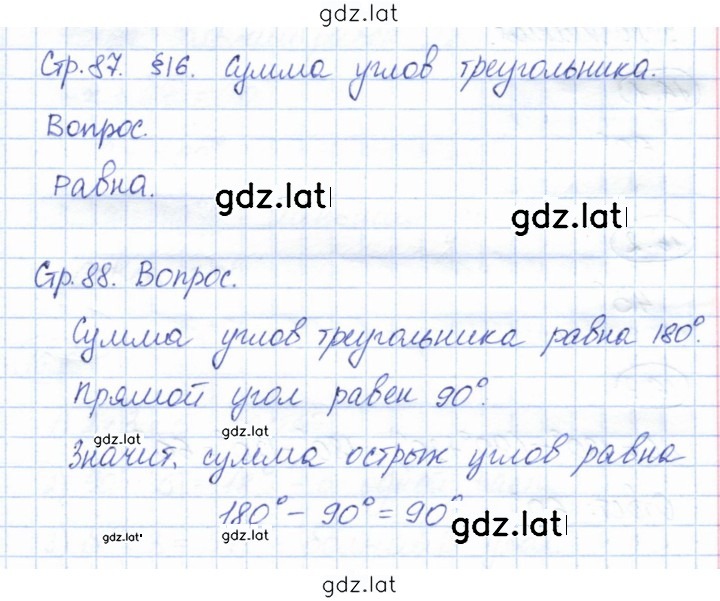 gdz.lat
Стр.87. §16. Сумма углов треугольника.
Вопрос.
Равна.
gdz.lat
gdz.lat
Стр.88. Вопрос.
Сумма углов треугольника равна 180°.
Прямой угол равен 90°.
gdz.lat
gdz.lat
Значит, сумма острых углов равна
180° - 90° = 90°
gdz.lat
gdz.lat
gdz.lat
gdz.lat